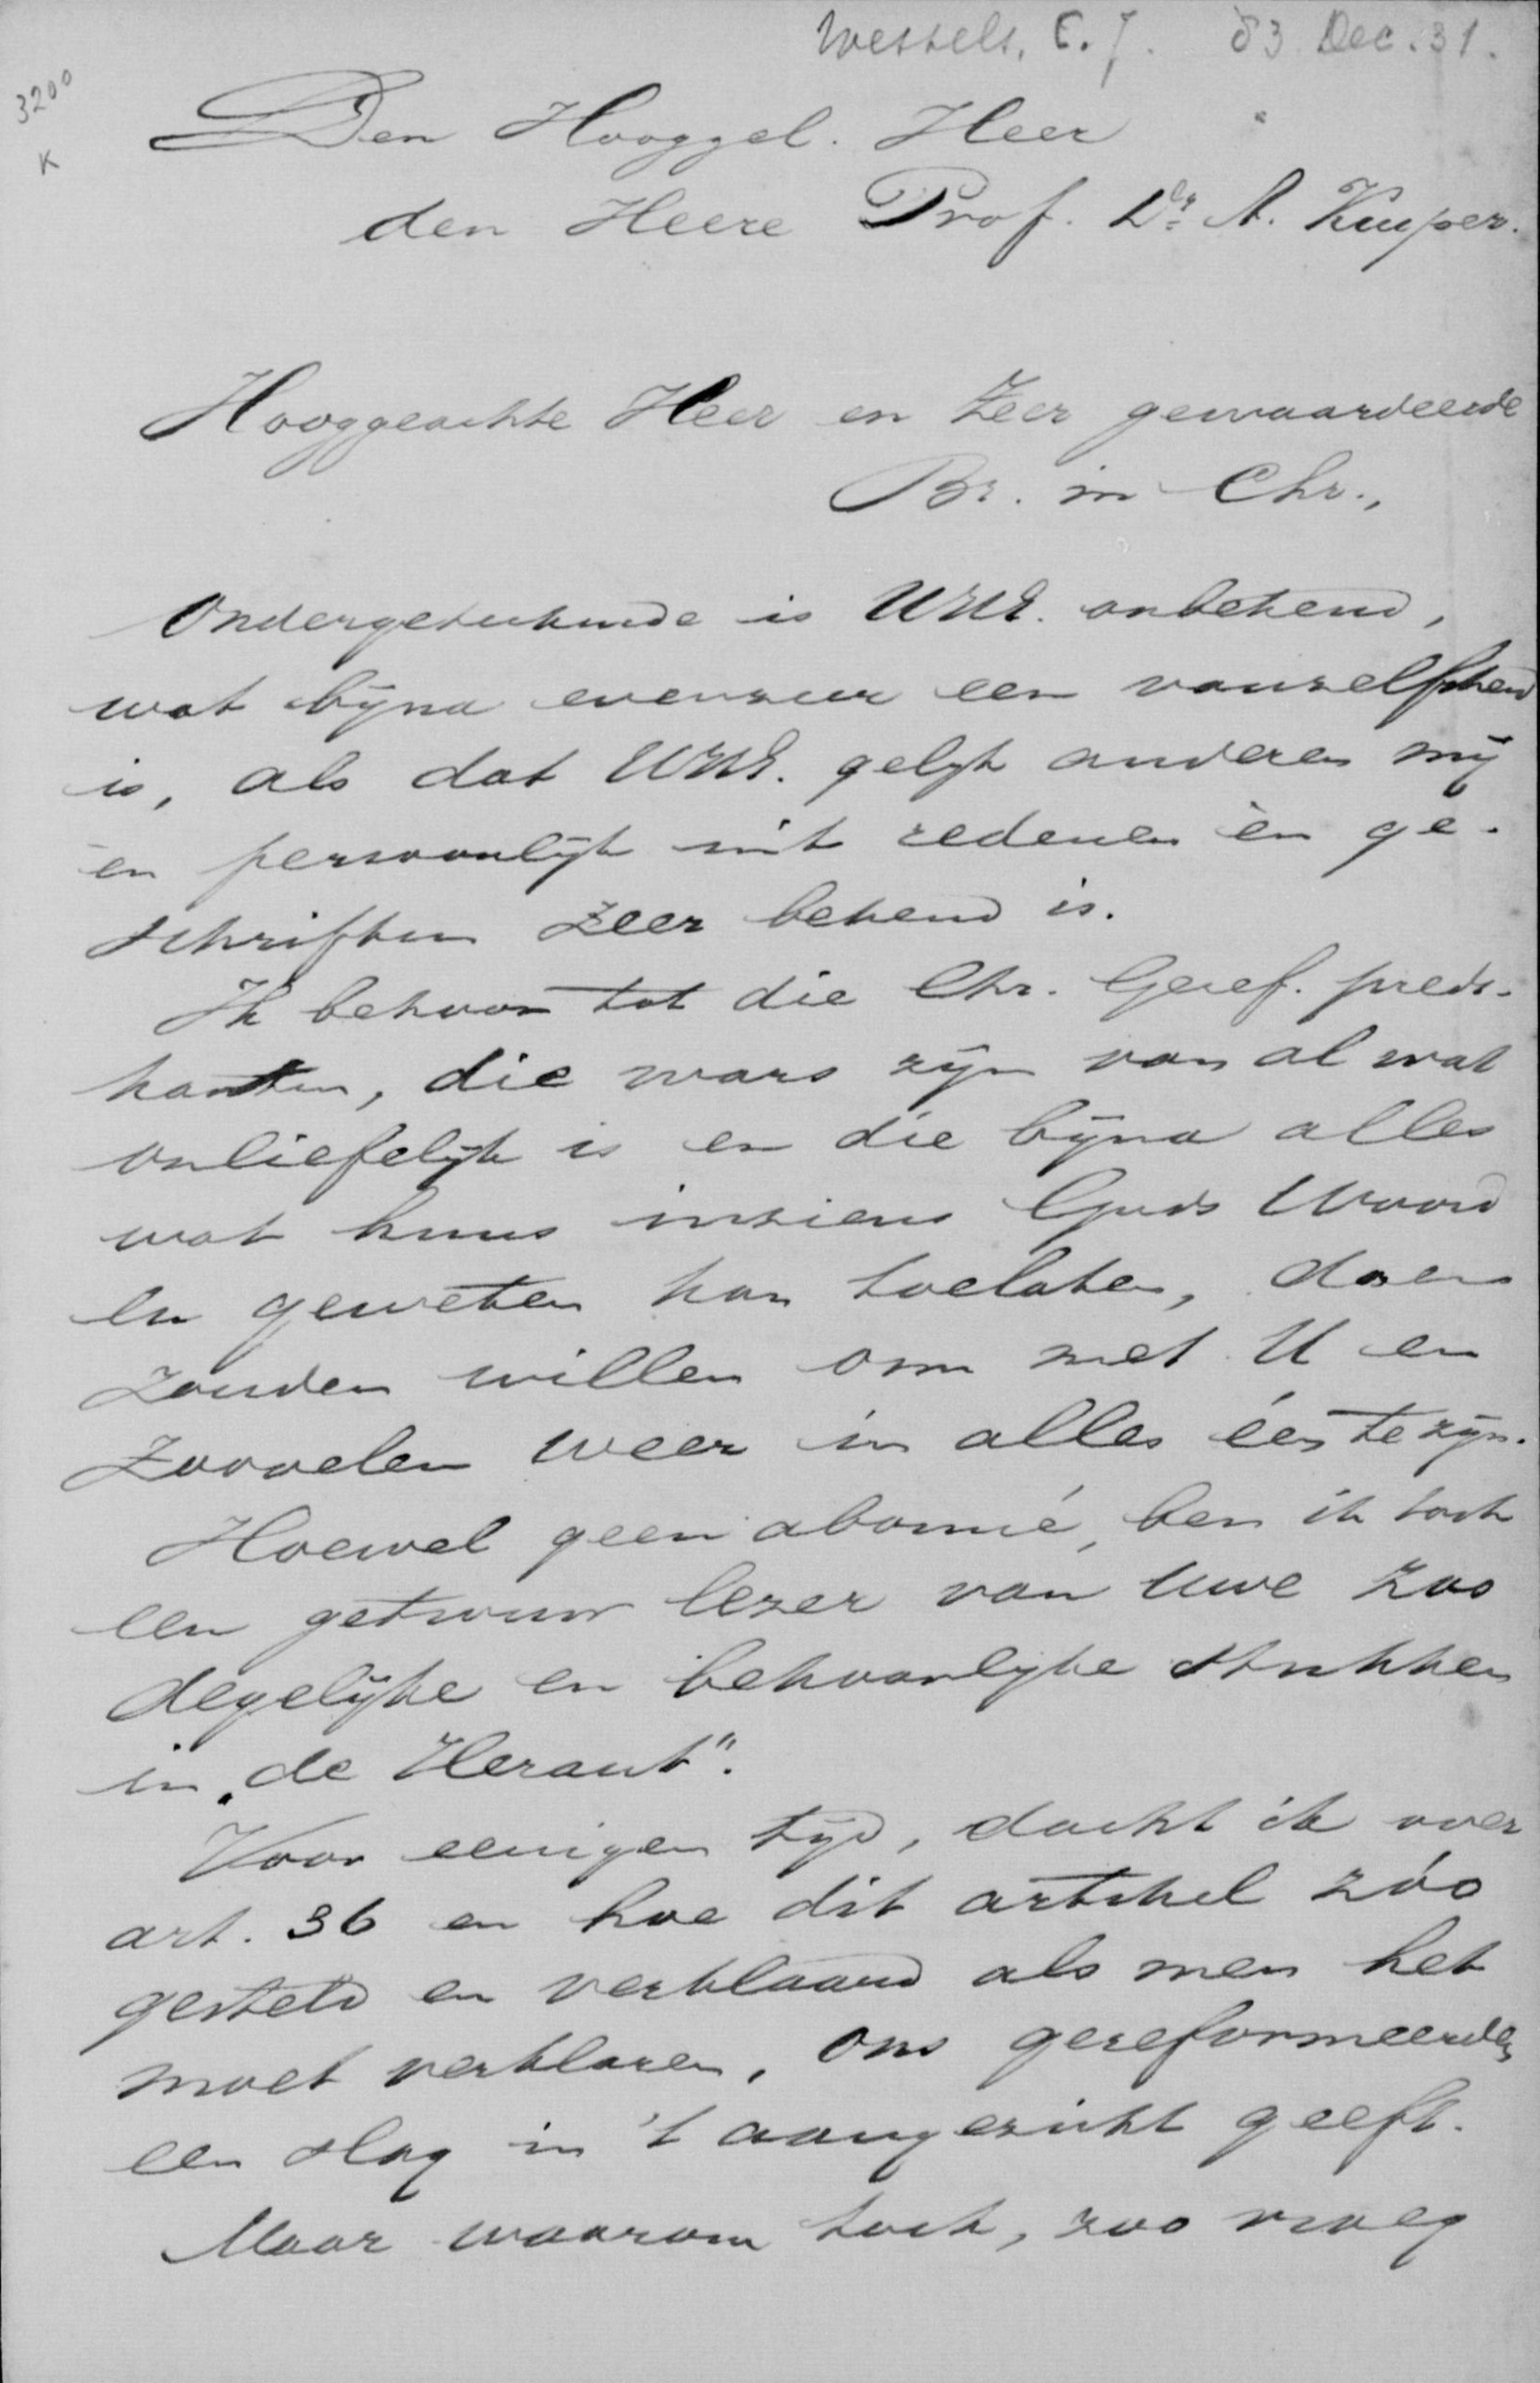 Wessels, C. J. 83 Dec. 31.
3200
K
Den Hooggel. Heer
den Heere Prof. Dr. A. Kuyper.
Hooggeachte Heer en Zeer gewaardeerde
Br. in Chr.,
Ondergeteekende is UWE. onbekend,
wat bijna evenzeer een vanzelfheid
is, als dat UWE. gelijk anderen mij
èn persoonlijk uit redenen èn ge-
schriften zeer bekend is.
Ik behoor tot die Chr. Geref. predi-
kanten, die wars zijn van al wat
onliefelijk is en die bijna alles
wat huns inziens Gods Woord
en geweten kan toelaten, doen
zouden willen om met U en
zoovelen weer in alles één te zijn.
Hoewel geen abonné, ben ik toch
een getrouw lezer van Uwe zoo
degelijke en bekoorlijke stukken
in „de Heraut".
Voor eenigen tijd, dacht ik over
art. 36 en hoe dit artikel zóo
gesteld en verklaard als men het
moet verklaren, ons gereformeerden
een slag in 't aangezicht geeft.
Maar waarom toch, zoo vroeg